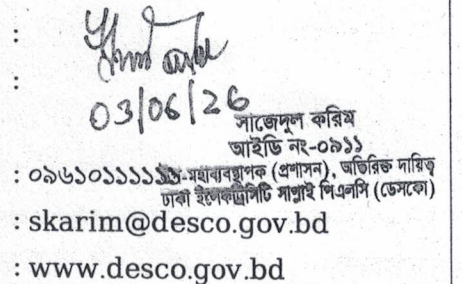 :
:
03/06/26
সাজেদুল করিম
আইডি নং-০৯১১
: ০৯৬১০১১১১১
-মহাব্যবস্থাপক (প্রশাসন), অতিরিক্ত দায়িত্ব
ঢাকা ইলেকট্রিসিটি সাপ্লাই পিএলসি (ডেসকো)
: skarim@desco.gov.bd
: www.desco.gov.bd